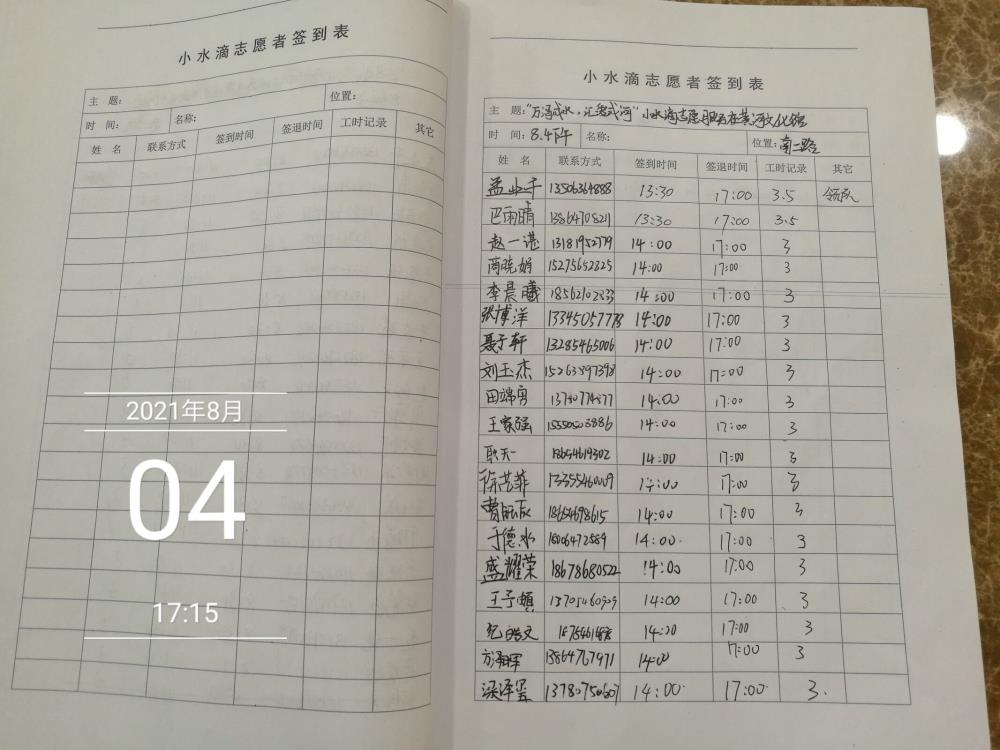 小水滴志愿者签到表
主 题: 位置:
时 间: 名称:
姓 名 联系方式 签到时间 签退时间 工时记录 其它
2021年8月
04
17:15
小水滴志愿者签到表
主 题: 小水滴志愿服务在黄河文化馆
时 间: 8.4下午 名称: 位置: 南二路
姓 名 联系方式 签到时间 签退时间 工时记录 其它
13506364888 13:30 17:00 3.5 领队
巴雨晴 13864708211 13:30 17:00 3.5
赵一谌 13181952779 14:00 17:00 3
商晓娟 15275652825 14:00 17:00 3
李晨曦 18562102333 14:00 17:00 3
张博洋 13345057778 14:00 17:00 3
聂子轩 13285465006 14:00 17:00 3
刘玉杰 15263897398 14:00 17:00 3
田端勇 14:00 17:00 3
王家强 15550503886 14:00 17:00 3
耿天一 18654619302 14:00 17:00 3
徐艺菲 13355460009 14:00 17:00 3
曹 18654698615 14:00 17:00 3
于德水 18006472589 14:00 17:00 3
盛耀荣 18678680522 14:00 17:00 3
王予 13705460909 14:00 17:00 3
纪皓文 14:20 17:00 3
方 13864767971 14:00 17:00 3
梁泽 13780750607 14:00 17:00 3